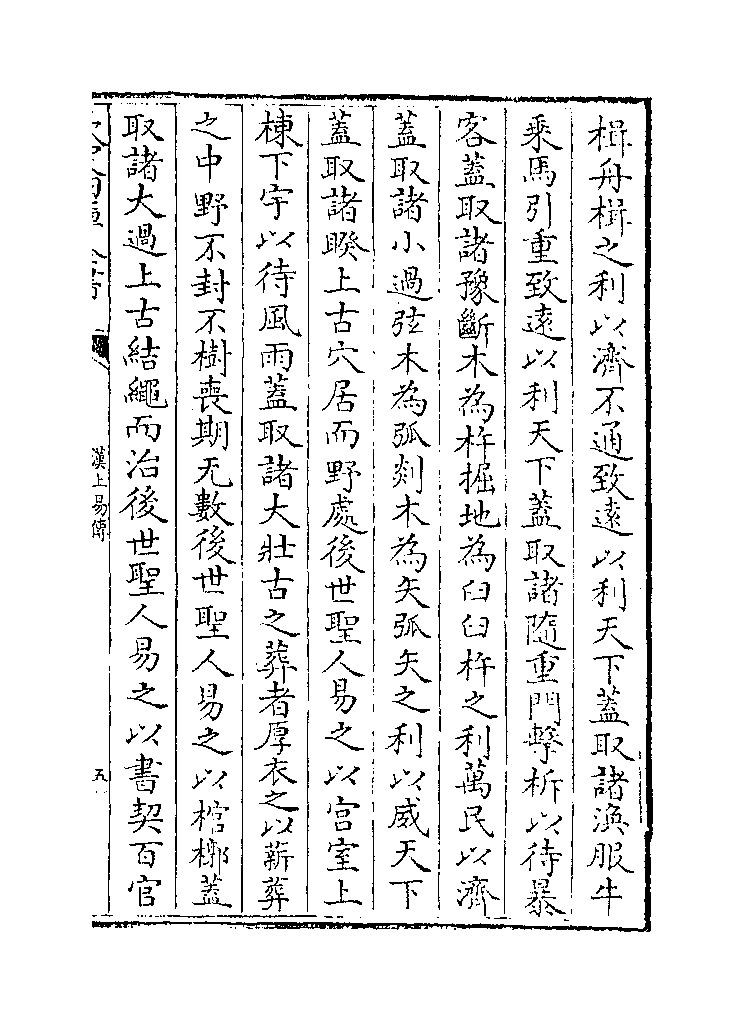 楫舟楫之利以濟不通致遠以利天下蓋取諸渙服牛
乘馬引重致遠以利天下蓋取諸隨重門擊柝以待暴
客蓋取諸豫斷木為杵掘地為臼臼杵之利萬民以濟
蓋取諸小過弦木為弧剡木為矢弧矢之利以威天下
蓋取諸睽上古穴居而野處後世聖人易之以宫室上
棟下宇以待風雨蓋取諸大壯古之葬者厚衣之以薪葬
之中野不封不樹喪期无數後世聖人易之以棺槨蓋
取諸大過上古結繩而治後世聖人易之以書契百官
漢上易傳
五